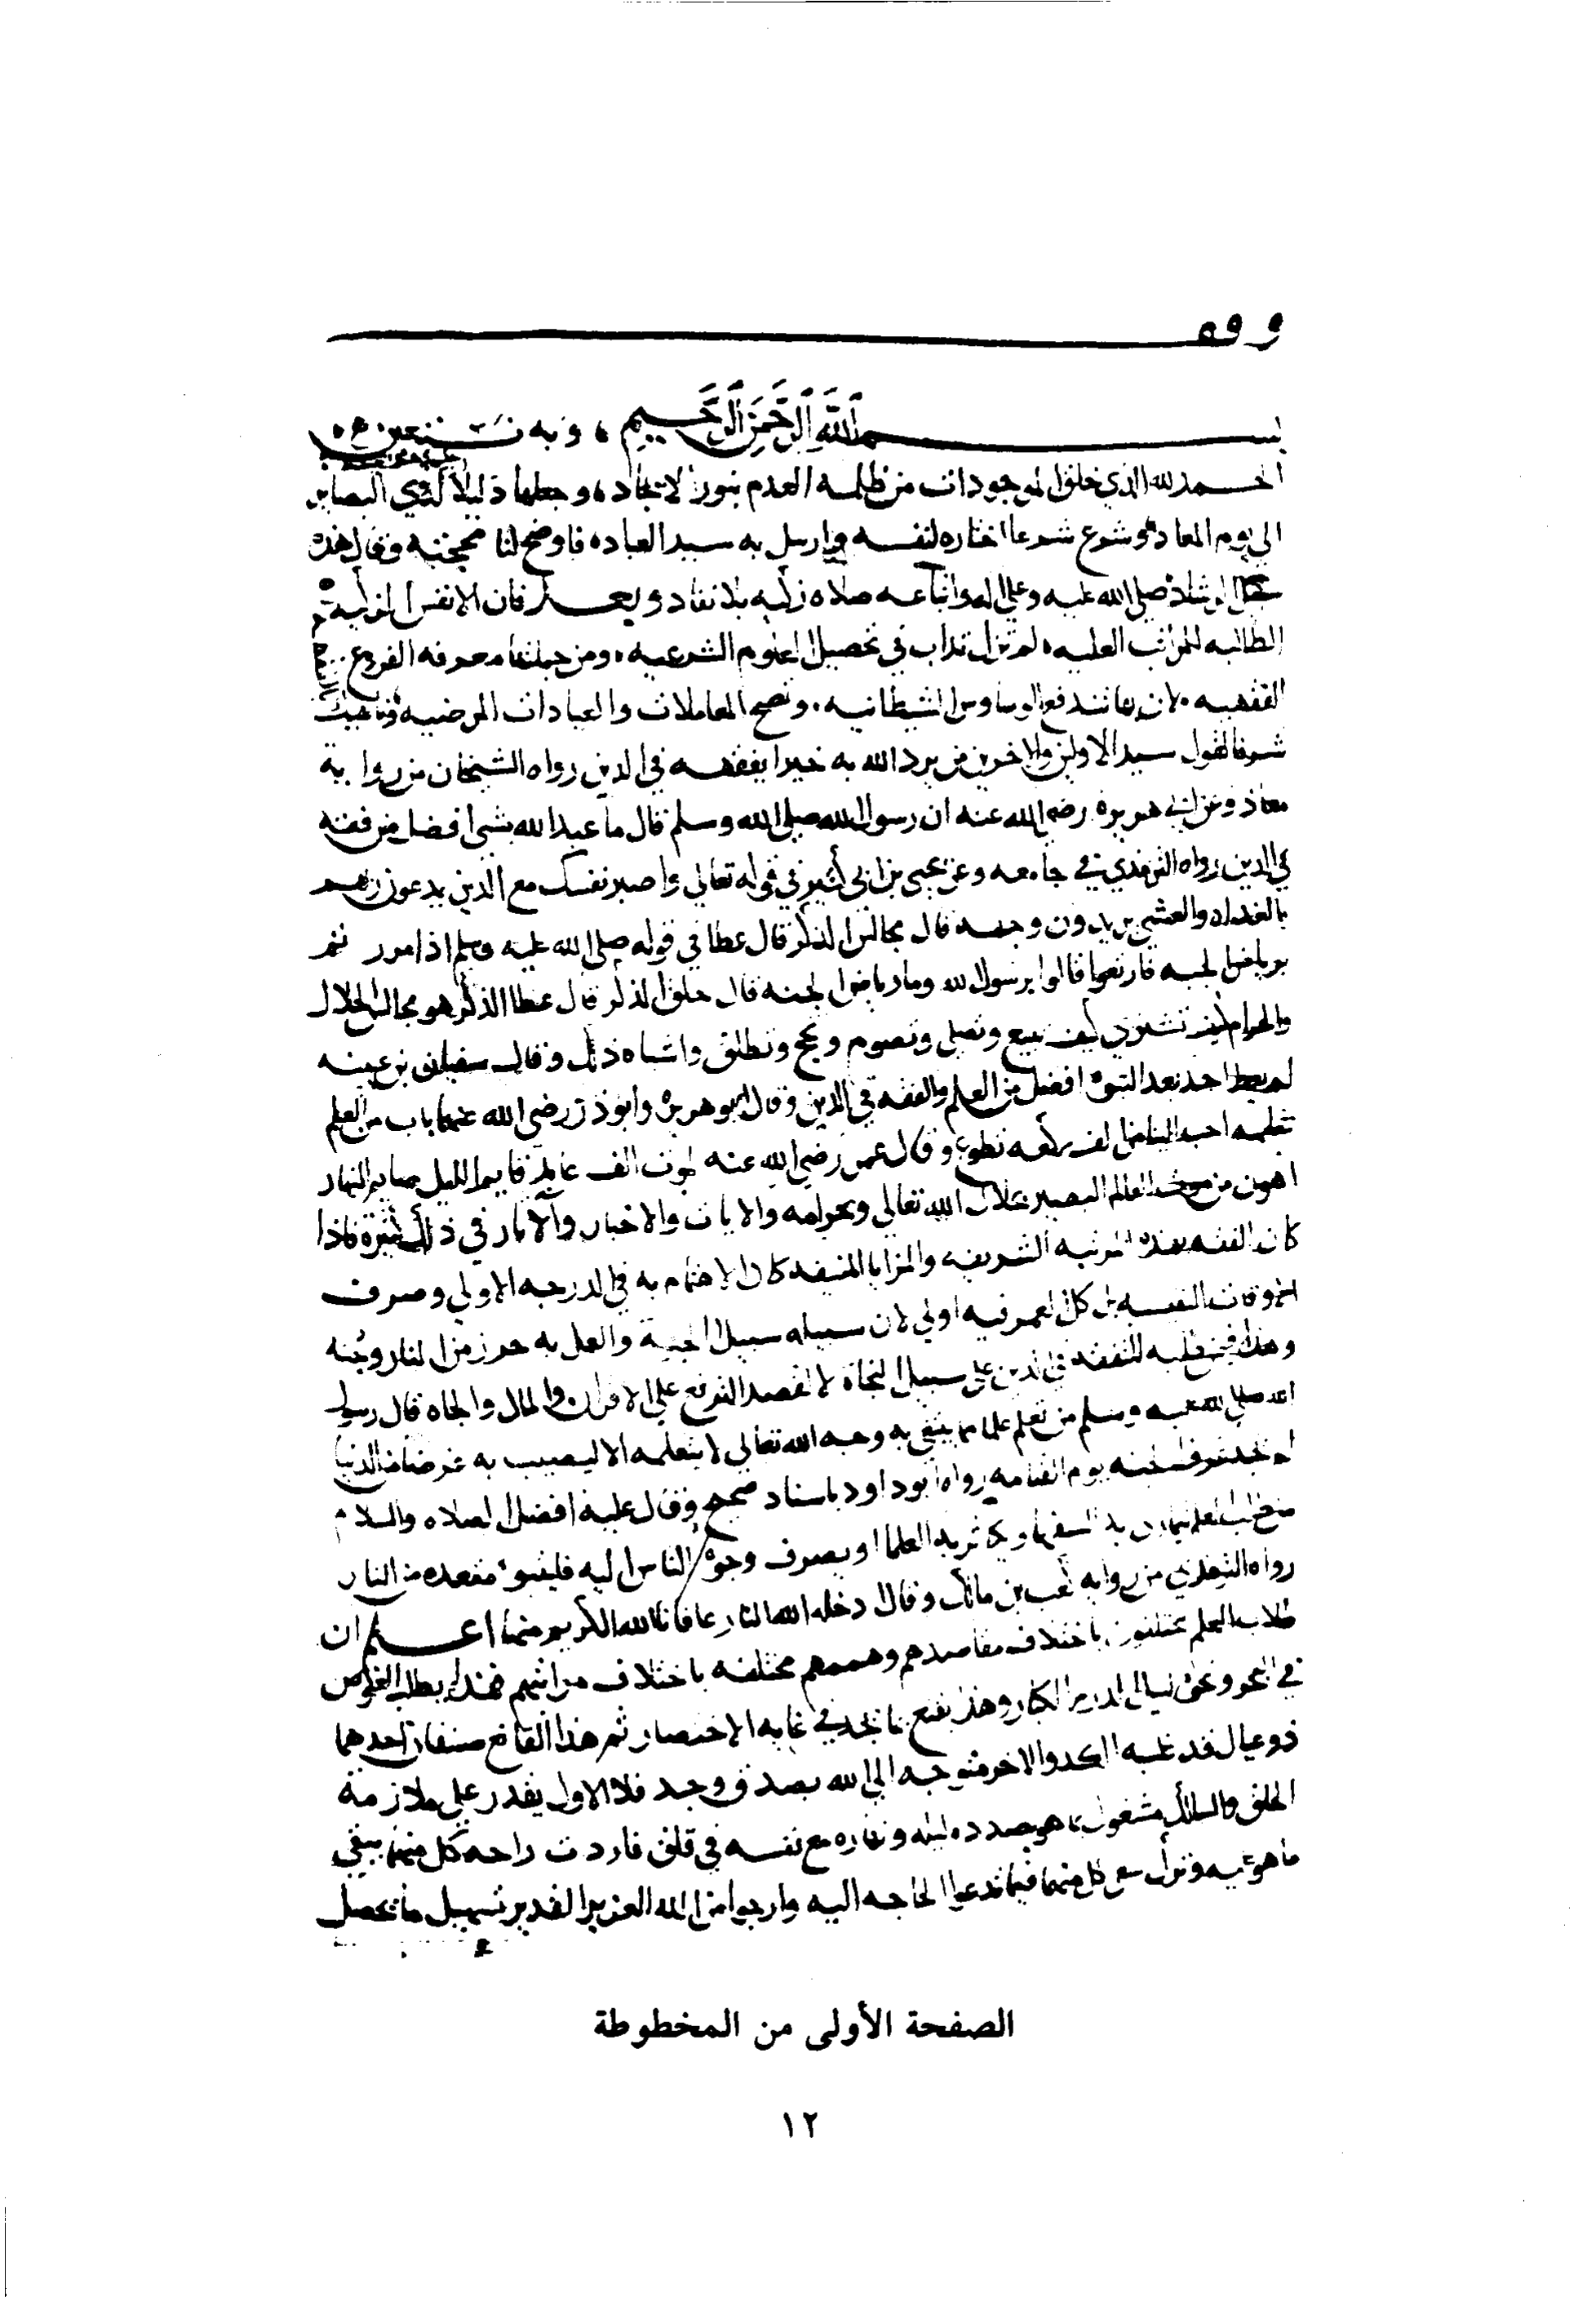 وقف
بسم الله الرحمن الرحيم ، وبه نستعين
الحمد لله الذي خلق الموجودات من ظلمة العدم بنور الايجاد ، وجعلها دليلا لذوي البصاير
الي يوم المعاد وشرع شرعا اختاره لنفسه وارسل به سيد العباد فاوضح لنا محجته وقال هذه
سبيل الرشاد صلي الله عليه وعلي اله واتباعه صلاة زاكية بلا نفاد وبعد فان الانفس الزكية
الطالبه للمراتب العليه لم تزل تداب في تحصيل العلوم الشرعيه ومن جملتها معرفه الفروع
الفقهيه لان بها تندفع الوساوس الشيطانيه وتصح المعاملات والعبادات المرضيه وناهيك
شرفا لقول سيد الاولين والاخرين من يرد الله به خيرا يفقهه في الدين رواه الشيخان من رواية
معاذ وعن ابي هريرة رضي الله عنه ان رسول الله صلي الله وسلم قال ما عبد الله بشي افضل من فقه
في الدين رواه الترمذي في جامعه وعن يحيي بن ابي كثير في قوله تعالي واصبر نفسك مع الذين يدعون ربهم
بالغداة والعشي يريدون وجهه قال مجالس الذكر قال عطا في قوله صلي الله عليه وسلم اذا مررتم
برياض الجنه فارتعوا قالوا يرسول الله وما رياض الجنه قال حلق الذكر قال عطا الذكر هو مجالس الحلال
والحرام كيف تشتري كيف تبيع وتصلي وتصوم وتحج وتطلق واشباه ذلك وقال سفيان بن عيينه
لم يعط احد بعد النبوة افضل من العلم والفقه في الدين وقال ابو هريرة وابو ذر رضي الله عنهما باب من العلم
تتعلمه احب الينا من الف ركعه تطوع وقال عمر رضي الله عنه لموت الف عابد قايم الليل صايم النهار
اهون من موت العالم البصير بحلال الله تعالي وبحرامه والايات والاخبار والاثار في ذلك كثيرة فاذا
كان الفقه بهذه المرتبه الشريفه والمزايا المنيفه كان الاهتمام به في الدرجه الاولي وصرف
الاوقات النفيسه بل كل العمر فيه اولي لان سبيله سبيل الجنة والعمل به حرز من النار وجنه
وهذا فيمن طلبه للتفقه في الدين علي سبيل النجاة لا لقصد الترفع علي الاقران والمال والجاه قال رسول
الله صلي الله عليه وسلم من تعلم علما مما يبتغي به وجه الله تعالي لا يتعلمه الا ليصيب به غرضا من الدنيا
لم يجد عرف الجنه يوم القيامه رواه ابو داود باسناد صحيح وقال عليه افضل الصلاه والسلام
من طلب العلم ليماري به السفها ويكاثر به العلما او يصرف وجوه الناس اليه فليتبوء مقعده من النار
رواه الترمذي من روايه كعب بن مالك وقال ادخله الله النار عافانا الله الكريم منها اعلم ان
طلاب العلم مختلفون باختلاف مقاصدهم وهممهم مختلفه باختلاف مراتبهم فهذا يطلب الغوص
في البحر وعنى لنيل الدرر الكبار وهذا يقنع بما يجد في غايه الاختصار ثم هذا القانع صنفان احدهما
ذو عيال قد غلبه الكد والاخر متوجه الي الله بصدق وجد فلا الاول يقدر علي ملازمة
الحلق والسالك مشغول بما هو بصدده ليله ونهاره مع نفسه في قلق فاردت راحه كل منهما ببقي
ما هو فيه وترك سع كل منهما فيما تدعوا الحاجه اليه وارجوا من الله العزيز القدير تسهيل ما تحصل
الصفحة الأولى من المخطوطة
١٢